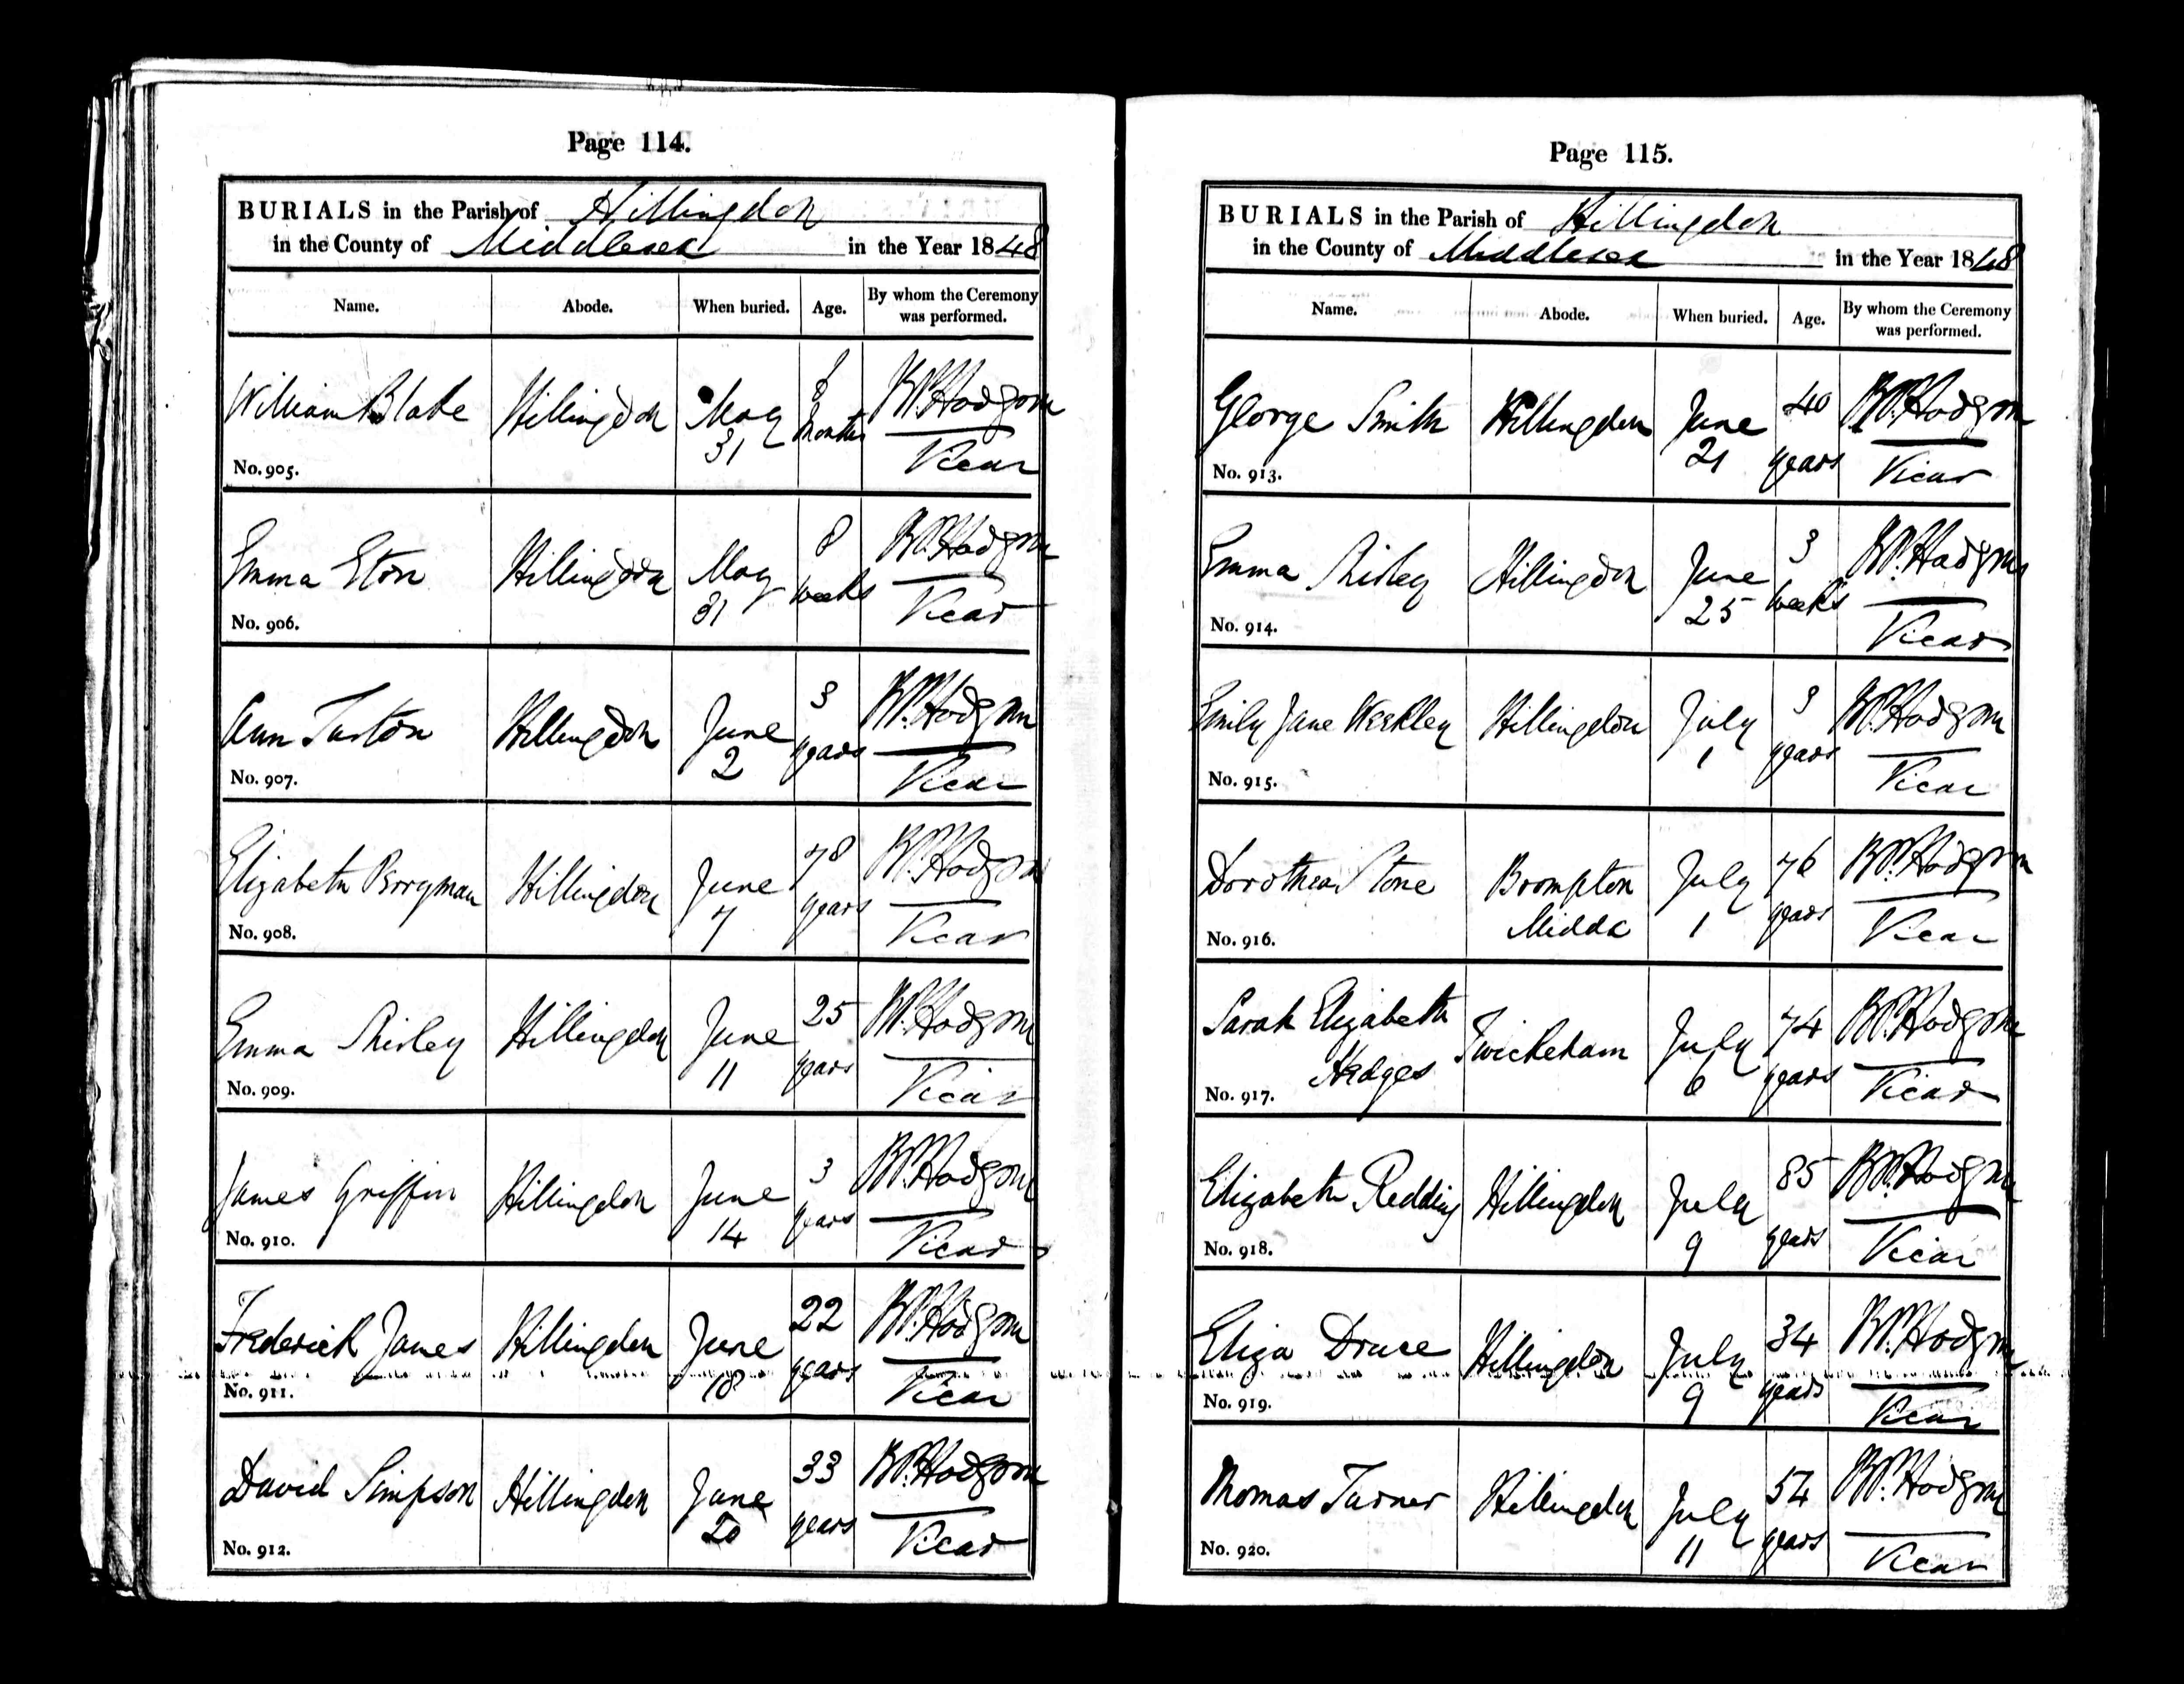 Page 114.
BURIALS in the Parish of Hillingdon
in the County of Middlesex in the Year 1848
Name. Abode. When buried. Age. By whom the Ceremony was performed.
William Blake Hillingdon May 31 8 Months Wm. Hodgson Vicar
No. 905.
Emma Eton Hillingdon May 31 8 weeks Wm. Hodgson Vicar
No. 906.
Ann Turton Hillingdon June 2 3 years Wm. Hodgson Vicar
No. 907.
Elizabeth Perryman Hillingdon June 7 78 years Wm. Hodgson Vicar
No. 908.
Emma Shirley Hillingdon June 11 25 years Wm. Hodgson Vicar
No. 909.
James Griffin Hillingdon June 14 3 years Wm. Hodgson Vicar
No. 910.
Frederick James Hillingdon June 18 22 years Wm. Hodgson Vicar
No. 911.
David Simpson Hillingdon June 20 33 years Wm. Hodgson Vicar
No. 912.
Page 115.
BURIALS in the Parish of Hillingdon
in the County of Middlesex in the Year 1848
Name. Abode. When buried. Age. By whom the Ceremony was performed.
George Smith Hillingdon June 21 40 years Wm. Hodgson Vicar
No. 913.
Emma Shirley Hillingdon June 25 3 weeks Wm. Hodgson Vicar
No. 914.
Emily Jane Weekley Hillingdon July 1 3 years Wm. Hodgson Vicar
No. 915.
Dorothea Stone Brompton Middx July 1 76 years Wm. Hodgson Vicar
No. 916.
Sarah Elizabeth Hedges Twickeham July 6 74 years Wm. Hodgson Vicar
No. 917.
Elizabeth Redding Hillingdon July 9 85 years Wm. Hodgson Vicar
No. 918.
Eliza Druce Hillingdon July 9 34 years Wm. Hodgson Vicar
No. 919.
Thomas Turner Hillingdon July 11 54 years Wm. Hodgson Vicar
No. 920.